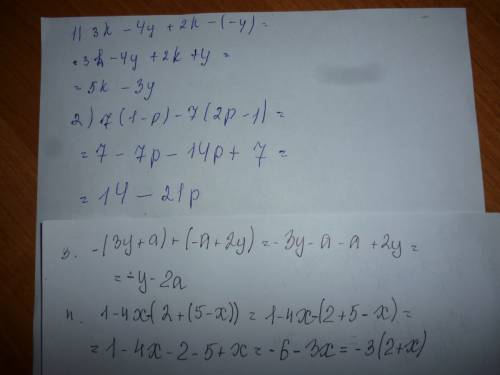 1) 3k - 4y + 2k - (-y) =
= 3k - 4y + 2k + y =
= 5k - 3y
2) 7(1-p) - 7(2p-1) =
= 7 - 7p - 14p + 7 =
= 14 - 21p
3. -(3y+a) + (-a+2y) = -3y - a - a + 2y =
= -y - 2a
4. 1-4x-(2+(5-x)) = 1-4x-(2+5-x) =
= 1-4x-2-5+x = -6-3x = -3(2+x)